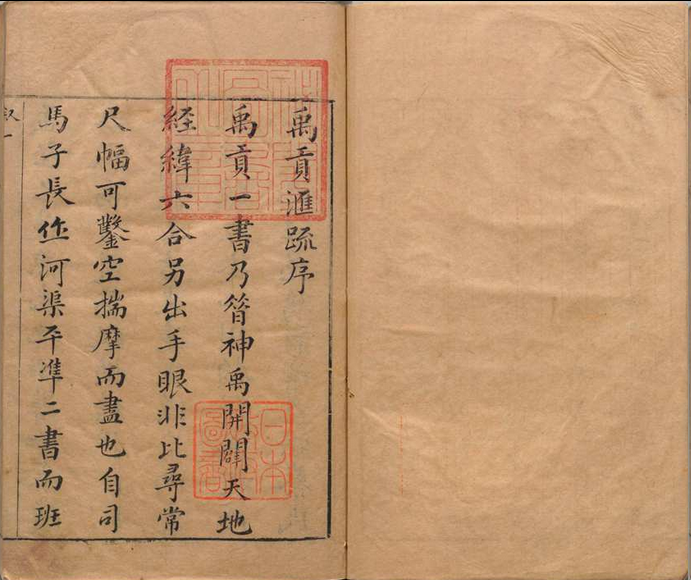 禹貢滙疏序
禹貢一書乃昝神禹開闢天地
経緯六合另出手眼非比尋常
尺幅可鑿空揣摩而盡也自司
馬子長作河渠平準二書而班
叙一
日本
政府
圖書